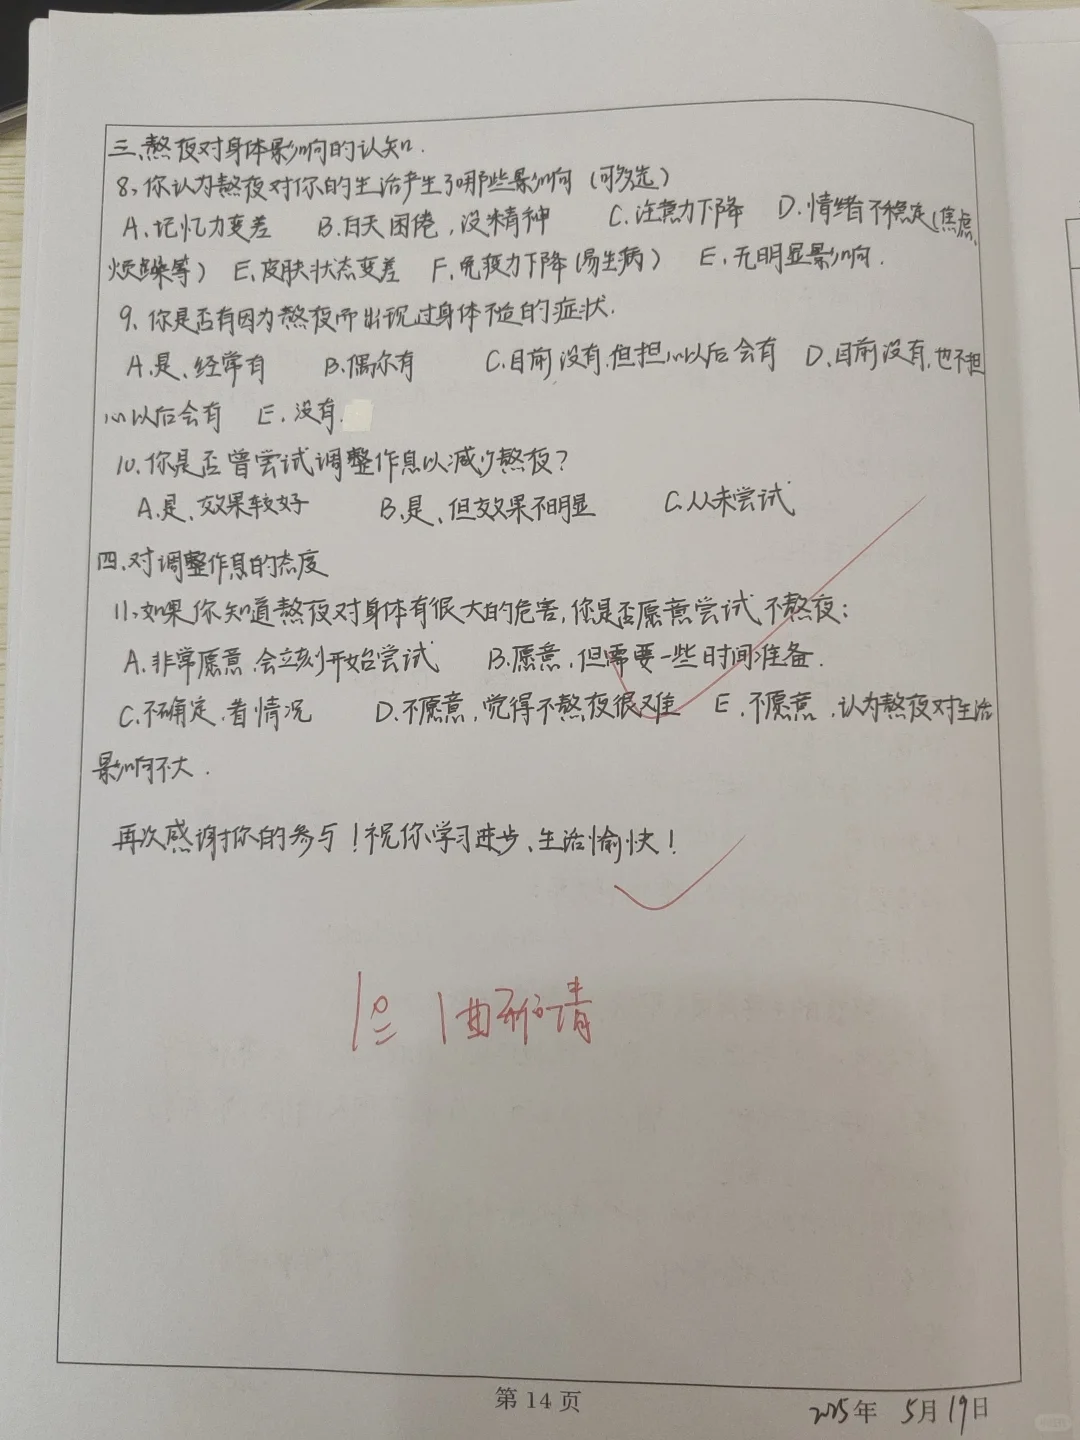 三、熬夜对身体影响的认知.
8、你认为熬夜对你的生活产生了哪些影响（可多选）
A、记忆力变差 B.白天困倦，没精神 C.注意力下降 D.情绪不稳定（焦虑、
烦躁等） E、皮肤状态变差 F、免疫力下降（易生病） E、无明显影响.
9、你是否有因为熬夜而出现过身体不适的症状.
A.是、经常有 B.偶尔有 C.目前没有，但担心以后会有 D.目前没有，也不担
心以后会有 E.没有.
10、你是否曾尝试调整作息以减少熬夜？
A.是、效果较好 B.是、但效果不明显 C.从未尝试
四、对调整作息的态度
11、如果你知道熬夜对身体有很大的危害，你是否愿意尝试不熬夜：
A.非常愿意，会立刻开始尝试 B.愿意，但需要一些时间准备.
C.不确定，看情况 D.不愿意，觉得不熬夜很难 E.不愿意，认为熬夜对生活
影响不大.
再次感谢你的参与！祝你学习进步、生活愉快！
第 14 页
2025年 5月19日